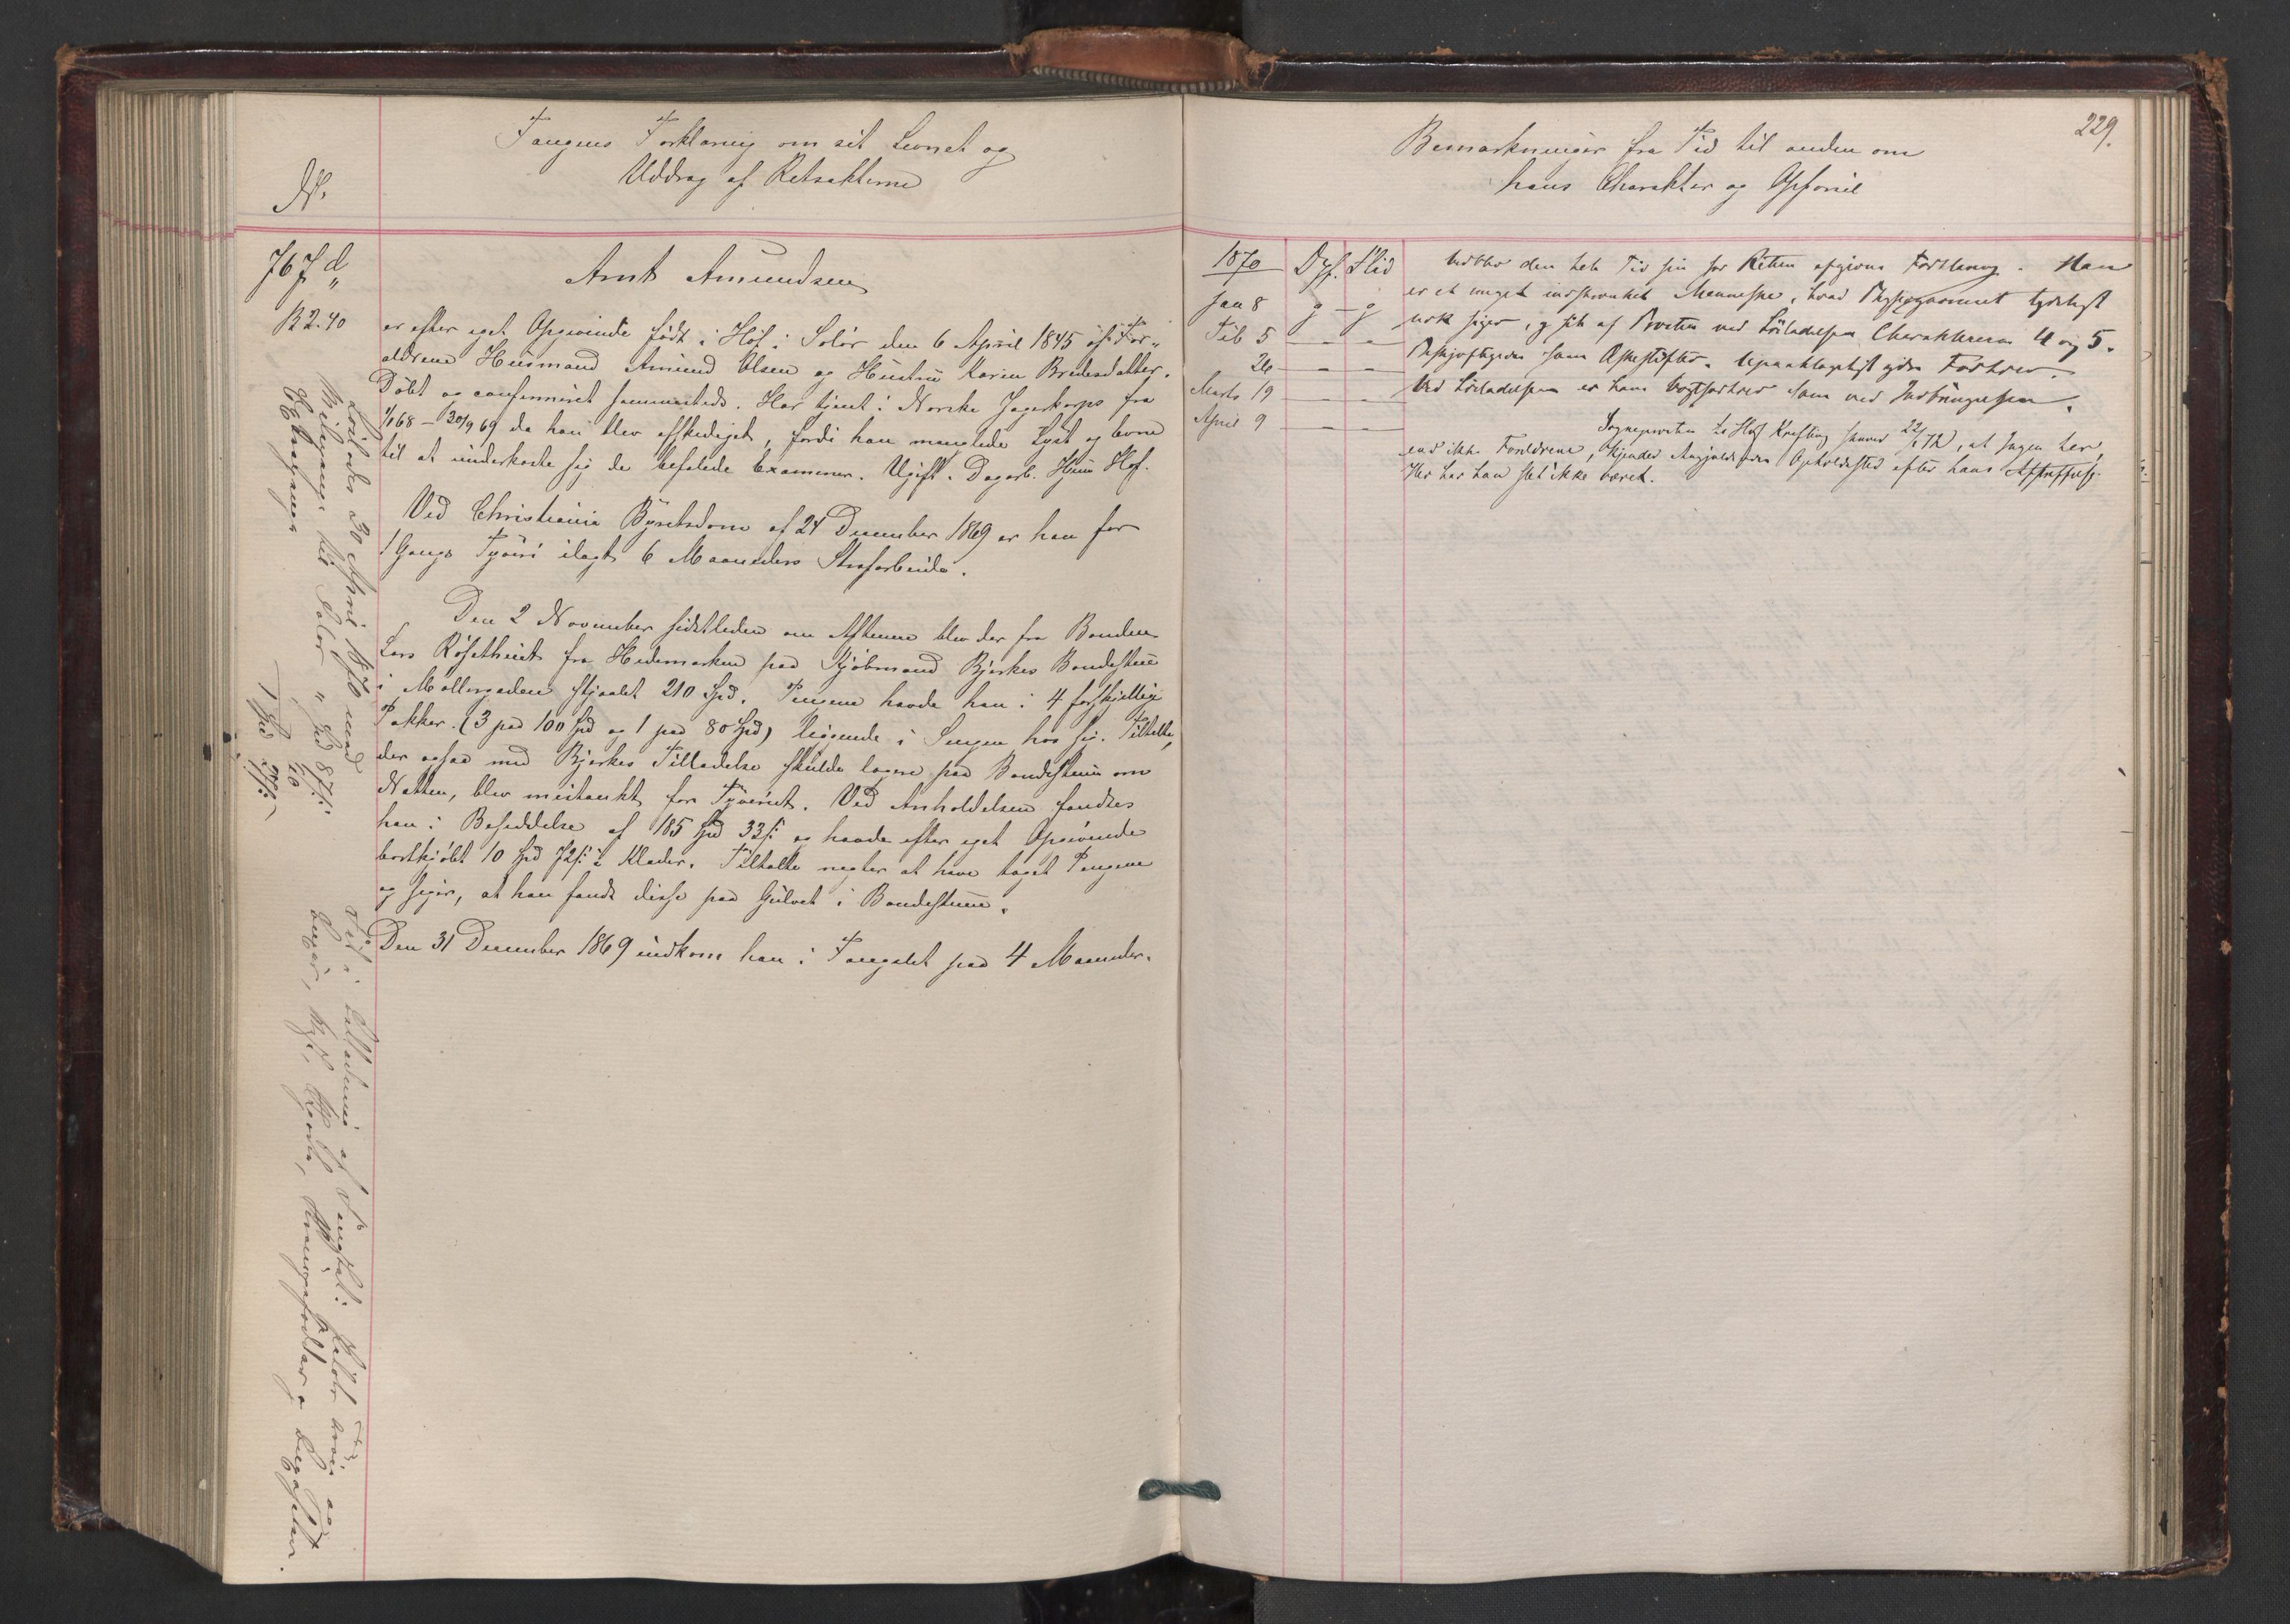 Fangens Forklaring om sit Levnet og
Uddrag af Retsakterne
No.
767 d
R 2.40
Arnt Amundsen
er efter eget Opgivende født i Hof i Solør den 6 April 1845 af For-
ældrene Husmand Amund Olsen og Hustru Karen Bredesdatter.
Døbt og confirmeret sammesteds. Har tjent i Norske Jægerkorps fra
1/1 68 – 30/9 69 da han blev afskediget, fordi han manglede Lyst og Evne
til at underkaste sig de befalede Examiner. Ugift. Dagarb. Hjem Hof.
Ved Christiania Byretsdom af 24 December 1869 er han for
1 Gangs Tyveri ilagt 6 Maaneders Strafarbeide.
Den 2 November sidstleden om Aftenen blev der fra Bonden
Lars Røsethuet fra Hedemarken paa Kjøbmand Bjerkes Bondestue
i Møllergaden stjaalet 210 Spd. Pengene havde han i 4 forskjellige
Pakker (3 paa 100 Spd og 1 paa 80 Spd) liggende i Sengen hos sig. Tiltalte,
der ogsaa med Bjerkes Tilladelse skulde logere paa Bondestuen om
Natten, blev mistænkt for Tyveriet. Ved Anholdelsen fandtes
han i Besiddelse af 185 Spd 33 s og havde efter eget Opgivende
bortkjøbt 10 Spd 72 s i Klæder. Tiltalte negter at have taget Pengene
og siger, at han fandt disse paa Gulvet i Bondestuen.
Den 31 December 1869 indkom han i Fængslet paa 4 Maaneder.
Løslodes 30 April 1870 med
Reisepenge til Solør " Spd 87 s
1 Spd
229.
Bemærkninger fra Tid til anden om
hans Charakter og Opførsel
1870 Opf. Flid
Jan 8 g – g
Feb 5 – – –
26 – – –
Marts 19 – – –
April 9 – – –
Vedblev den hele Tid sin for Retten afgivne Forklaring. Han
er et meget indskrænket Menneske, hvad Physiognomiet tydeligt
nok siger, og fik af Præsten ved Løsladelsen Charaktererne 4 og 5.
Beskjæftigedes som
Ved Løsladelsen er hans som ved Indbringelsen.
Sognepresten til Hof Krefting skriver 22/1 72, at Ingen her,
end ikke Forældrene, kjender Angjældendes Opholdssted efter hans Afstraffelse.
Her har han slet ikke været.